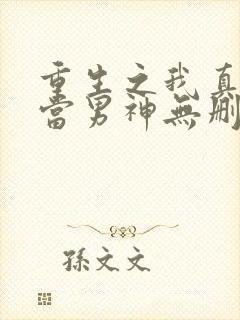 重生之我真
當男神無刪
孫文文